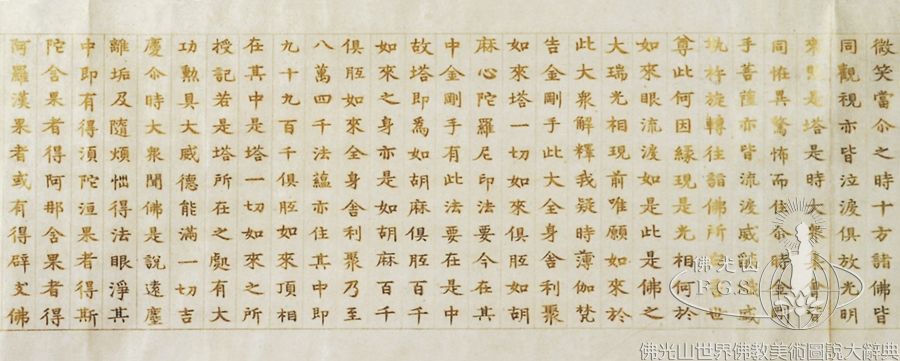 微笑當尒之時十方諸佛皆
同觀視亦皆泣淚俱放光明
來照是塔是時大眾集會
同恠異驚怖而住尒時金剛
手菩薩亦皆流淚威
執杵旋轉往詣佛所世
尊此何因緣現是光相何於
如來眼流淚如是此是佛之
大瑞光相現前唯願如來於
此大衆解釋我疑時薄伽梵
告金剛手此大全身舍利聚
如來塔一切如來俱胝如胡
麻心陀羅尼印法要今在其
中金剛手有此法要在是中
故塔即爲如胡麻俱胝百千
如來之身亦是如胡麻百千
俱胝如來全身舍利聚乃至
八萬四千法蘊亦住其中即
九十九百千俱胝如來頂相
在其中是塔一切如來之所
授記若是塔所在之處有大
功勳具大威德能滿一切吉
慶尒時大衆聞佛是說遠塵
離垢及隨煩惱得法眼淨其
中即有得須陀洹果者得斯
陀含果者得阿那含果者得
阿羅漢果者或有得辟支佛
佛光山
F.G.S.
佛光山世界佛教美術圖說大辭典